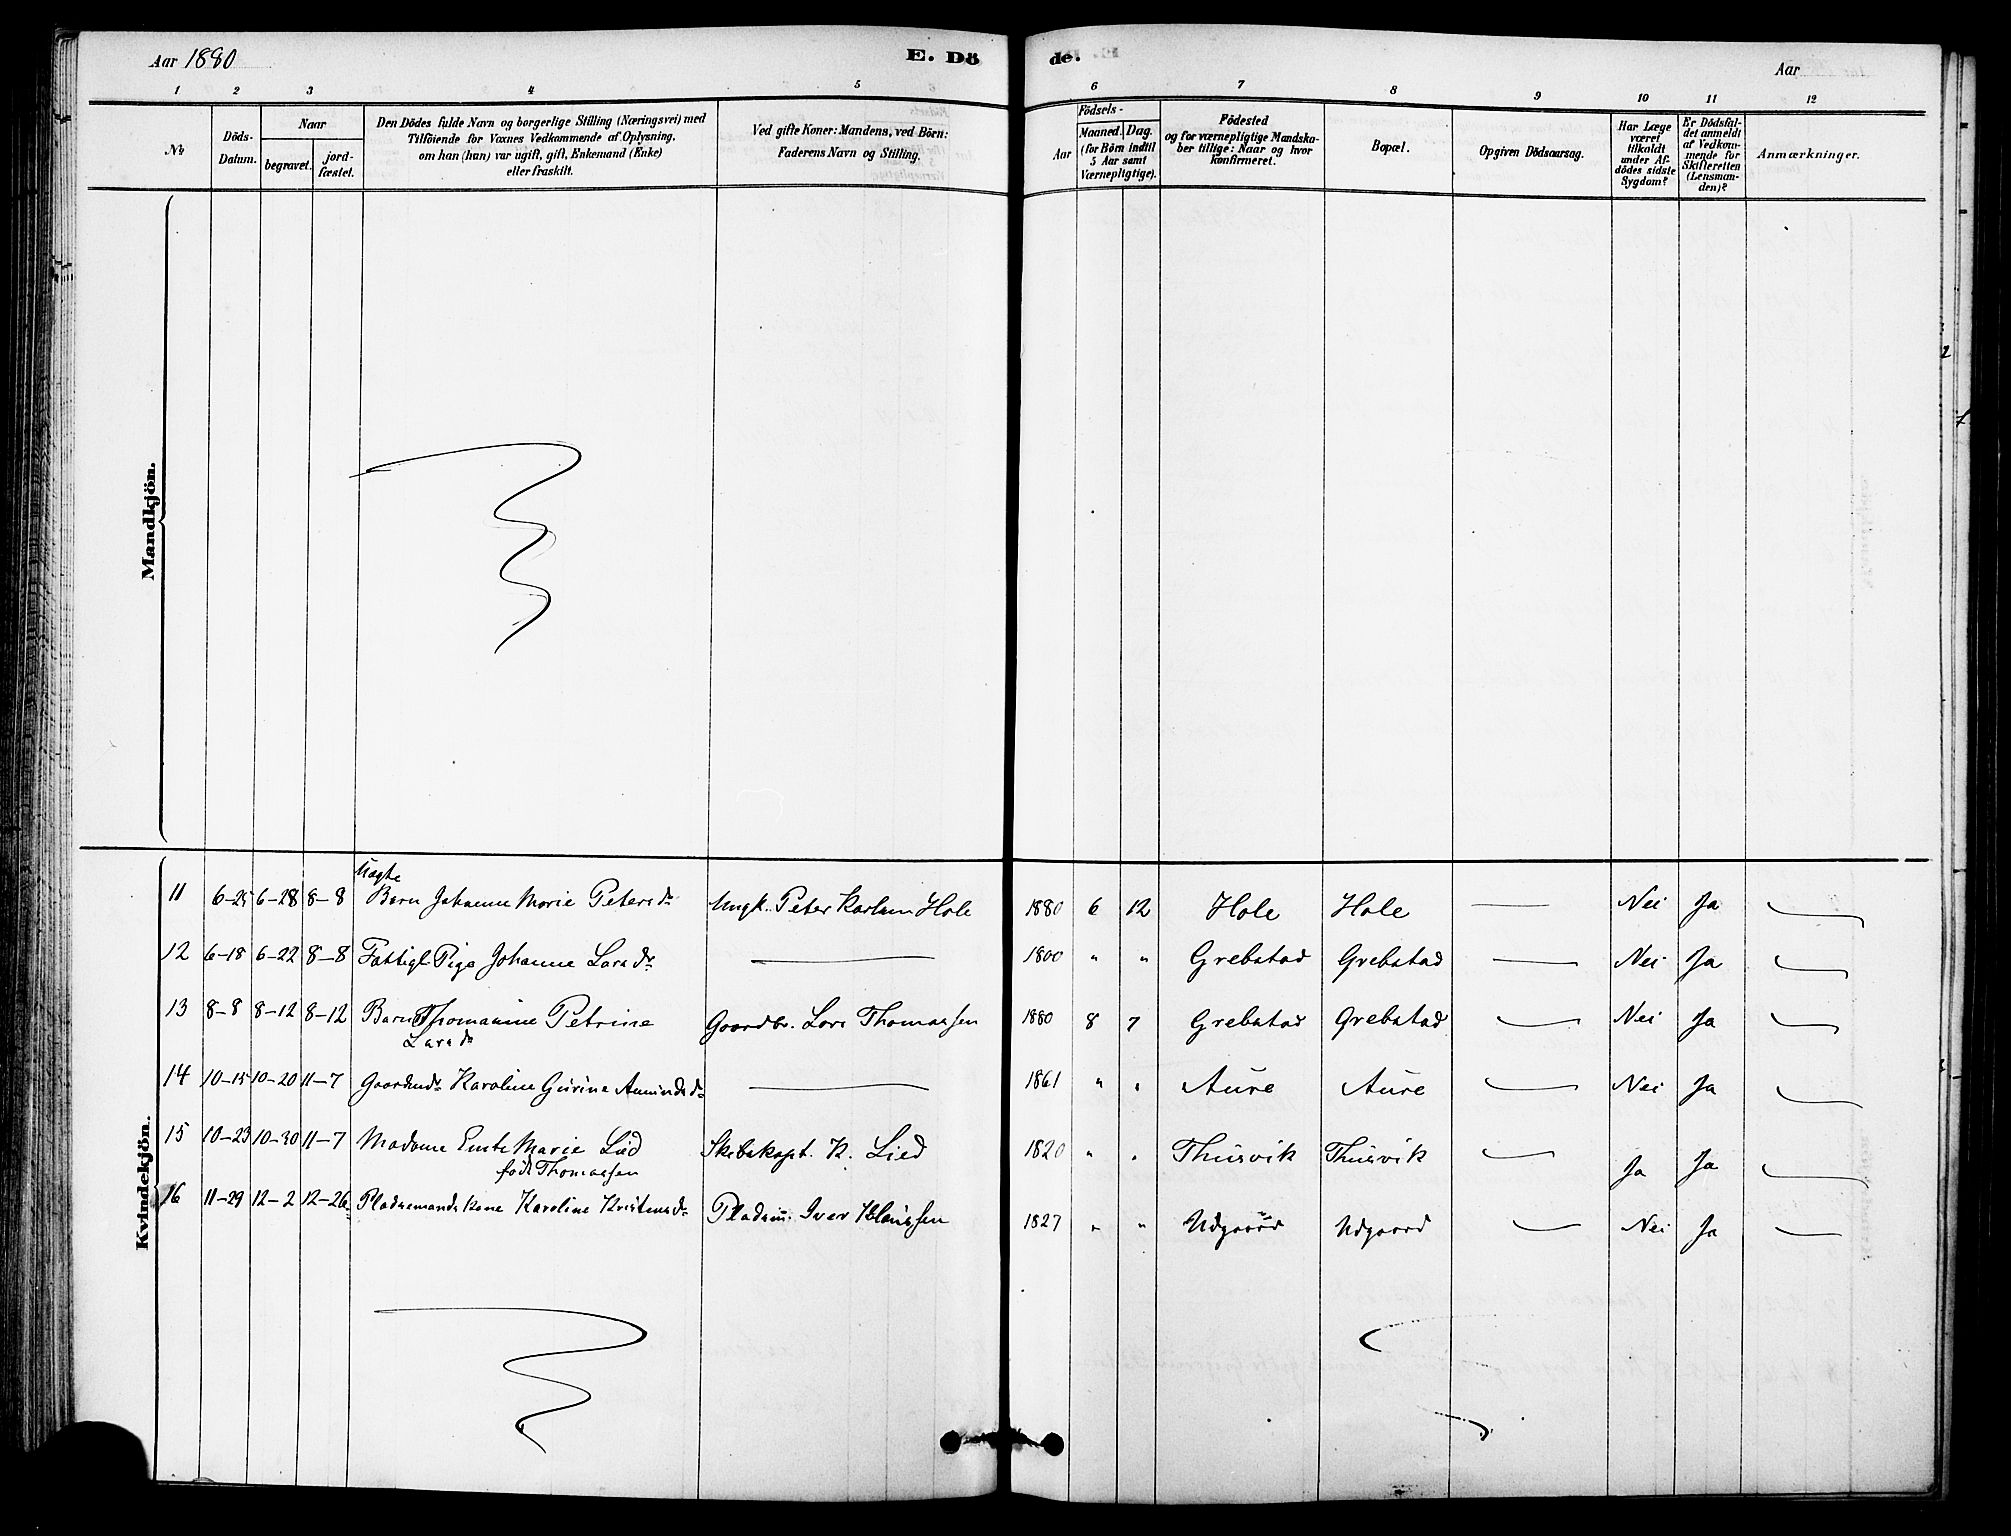 Aar 1880 E. Dö de. Aar
1 2 3 4 5 6 7 8 9 10 11 12
No
Döds-Datum.
Naar
begravet.
jord-fæstet.
Den Dödes fulde Navn og borgerlige Stilling (Næringsvei) med
Tilföiende for Voxnes Vedkommende af Oplysning,
om han (hun) var ugift, gift, Enkemand (Enke)
eller fraskilt.
Ved gifte Koner: Mandens, ved Börn:
Faderens Navn og Stilling.
Födsels-
Aar
Maaned. Dag.
(for Börn indtil
5 Aar samt
Værnepligtige).
Födested
og for værnepligtige Mandska-
ber tillige: Naar og hvor
konfirmeret.
Bopæl.
Opgiven Dödsaarsag.
Har Læge
været
tilkaldt
under Af-
dödes sidste
Sygdom?
Er Dödsfal-
det anmeldt
af Vedkom-
mende for
Skifteretten
(Lensman-
den)?
Anmærkninger.
Mandkjön.
Kvindekjön.
Uægte
11 6-25 6-28 8-8 Barn Johanne Marie Petersdr Ungk. Peter Karlsen Hole 1880 6 12 Hole Hole — Nei Ja —
12 6-18 6-22 8-8 Fattigl. Pige Johanne Larsdr — 1800 " " Grebstad Grebstad — Nei Ja —
13 8-8 8-12 8-12 Barn Thomasine Petrine Gaardbr. Lars Thomassen 1880 8 7 Grebstad Grebstad — Nei Ja —
Larsdr
14 10-15 10-20 11-7 Karoline Gurine Amundsdr — 1861 " " Aure Aure — Nei Ja —
15 10-23 10-30 11-7 Madame Marie Lied Skibskapt. K. Lied 1820 " " Thusvik Thusvik — Ja Ja —
född Thomassen
16 11-29 12-2 12-26 Pladsemands Kone Karoline Kristensdr Pladsm. Iver 1827 " " Udgaard Udgaard — Nei Ja —